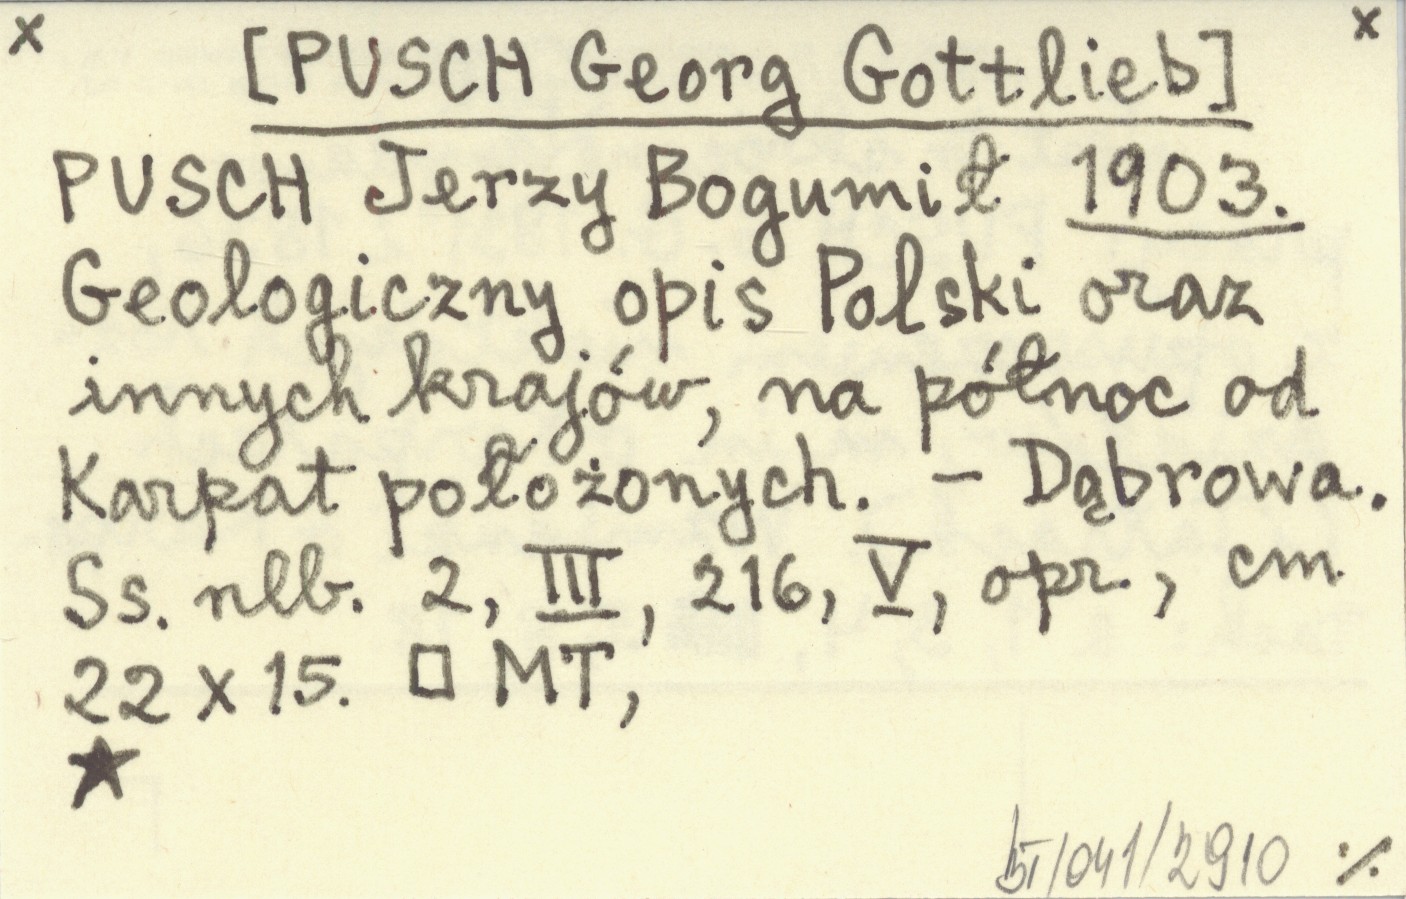 x x
[PUSCH Georg Gottlieb]
PUSCH Jerzy Bogumił 1903.
Geologiczny opis Polski oraz
innych krajów, na północ od
Karpat położonych. – Dąbrowa.
Ss. nlb. 2, III, 216, V, opr., cm
22 x 15. □ MT,
★
BT/041/2910 ./.